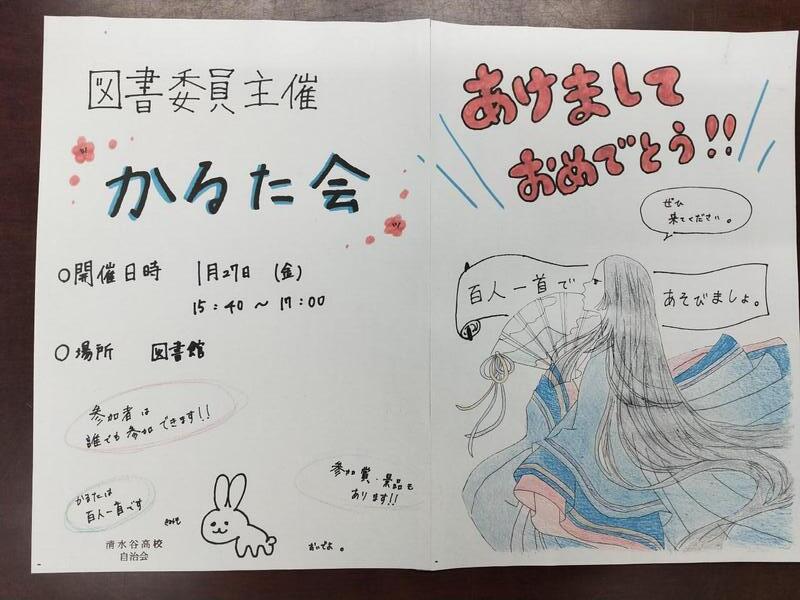 図書委員主催
かるた会
○開催日時 1月27日 (金)
15:40 〜 17:00
○場所 図書館
参加者は
誰でも参加できます!!
かるたは
百人一首です
参加賞・景品も
あります!!
おいでよ。
清水谷高校
自治会
あけまして
おめでとう!!
ぜひ
来てください。
百人一首で
あそびましょ。